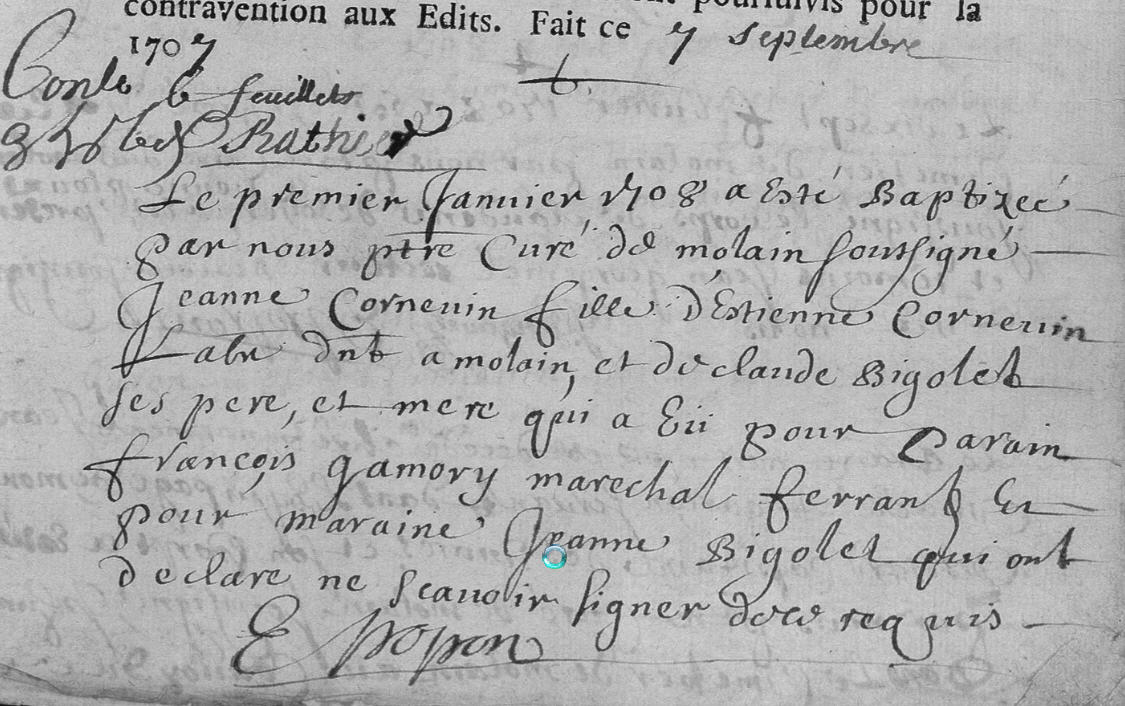 contravention aux Edits. Fait ce 7 septembre
1707
6 feuillets
Rathier
Le premier Janvier 1708 a Esté Baptizeé
par nous ptre Curé de molain soussigné
Jeanne Cornevin fille d'Estienne Cornevin
Labr dnt a molain, et de claude Bigolet
ses pere, et mere qui a Eü pour Parain
françois gamory marechal ferrant Et
pour maraine Jeanne Bigolet qui ont
declare ne scauoir signer de ce requis
E popon